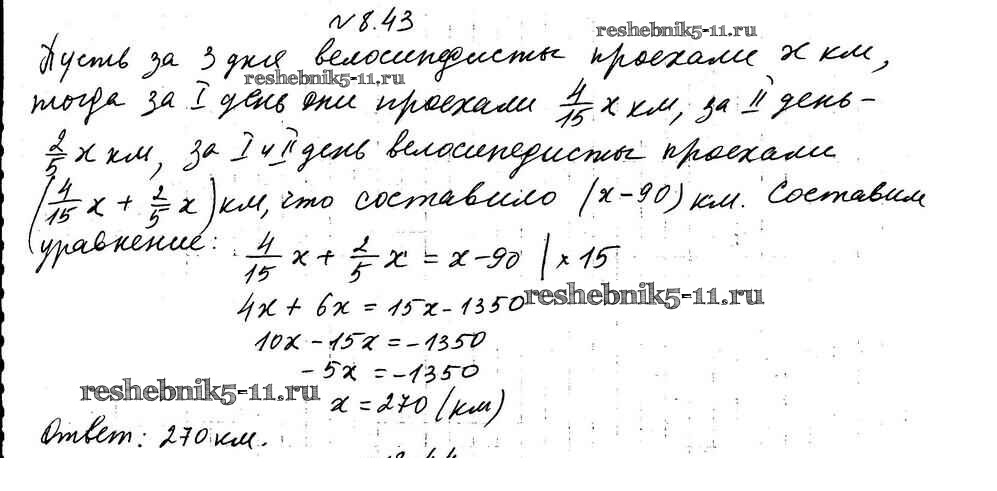 № 8.43
reshebnik5-11.ru
Пусть за 3 дня велосипедисты проехали x км,
reshebnik5-11.ru
тогда за I день они проехали 4/15 x км, за II день –
2/5 x км, за I и II день велосипедисты проехали
(4/15 x + 2/5 x) км, что составило (x-90) км. Составим
уравнение: 4/15 x + 2/5 x = x-90 | × 15
4x + 6x = 15x - 1350
reshebnik5-11.ru
10x - 15x = -1350
-5x = -1350
reshebnik5-11.ru
x = 270 (км)
Ответ: 270 км.